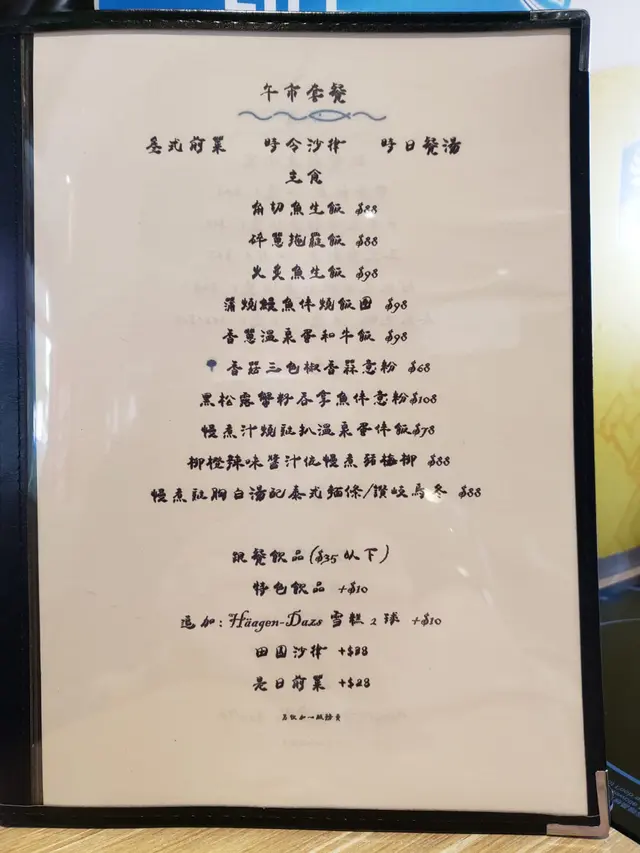 午市套餐
是式前菜 時令沙律 時日餐湯
主食
角切魚生飯 $88
碎蔥拖羅飯 $88
火炙魚生飯 $98
蒲燒鰻魚伴燒飯團 $98
香蔥温泉蛋和牛飯 $98
香菇三色椒香蒜意粉 $68
黑松露蟹籽吞拿魚伴意粉$108
慢煮汁燒豬扒温泉蛋伴飯$78
柳橙辣味醬汁伴慢煮豬梅柳 $88
慢煮豬胸白湯配泰式麵條/讚岐烏冬 $88
跟餐飲品($35以下)
特色飲品 +$10
追加:Häagen-Dazs 雪糕 2 球 +$10
田園沙律 +$38
是日前菜 +$28
另收加一服務費